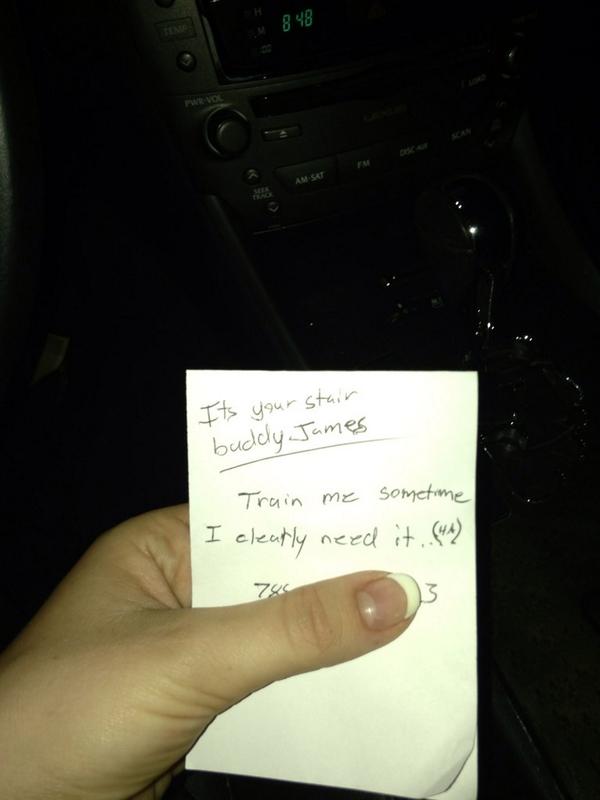 H
8:48
M
:00
TEMP
PWR·VOL
LOAD
AM·SAT
FM
DISC·AUX
SCAN
SEEK
TRACK
Its your stair
buddy James
Train me sometime
I clearly need it..
78
3